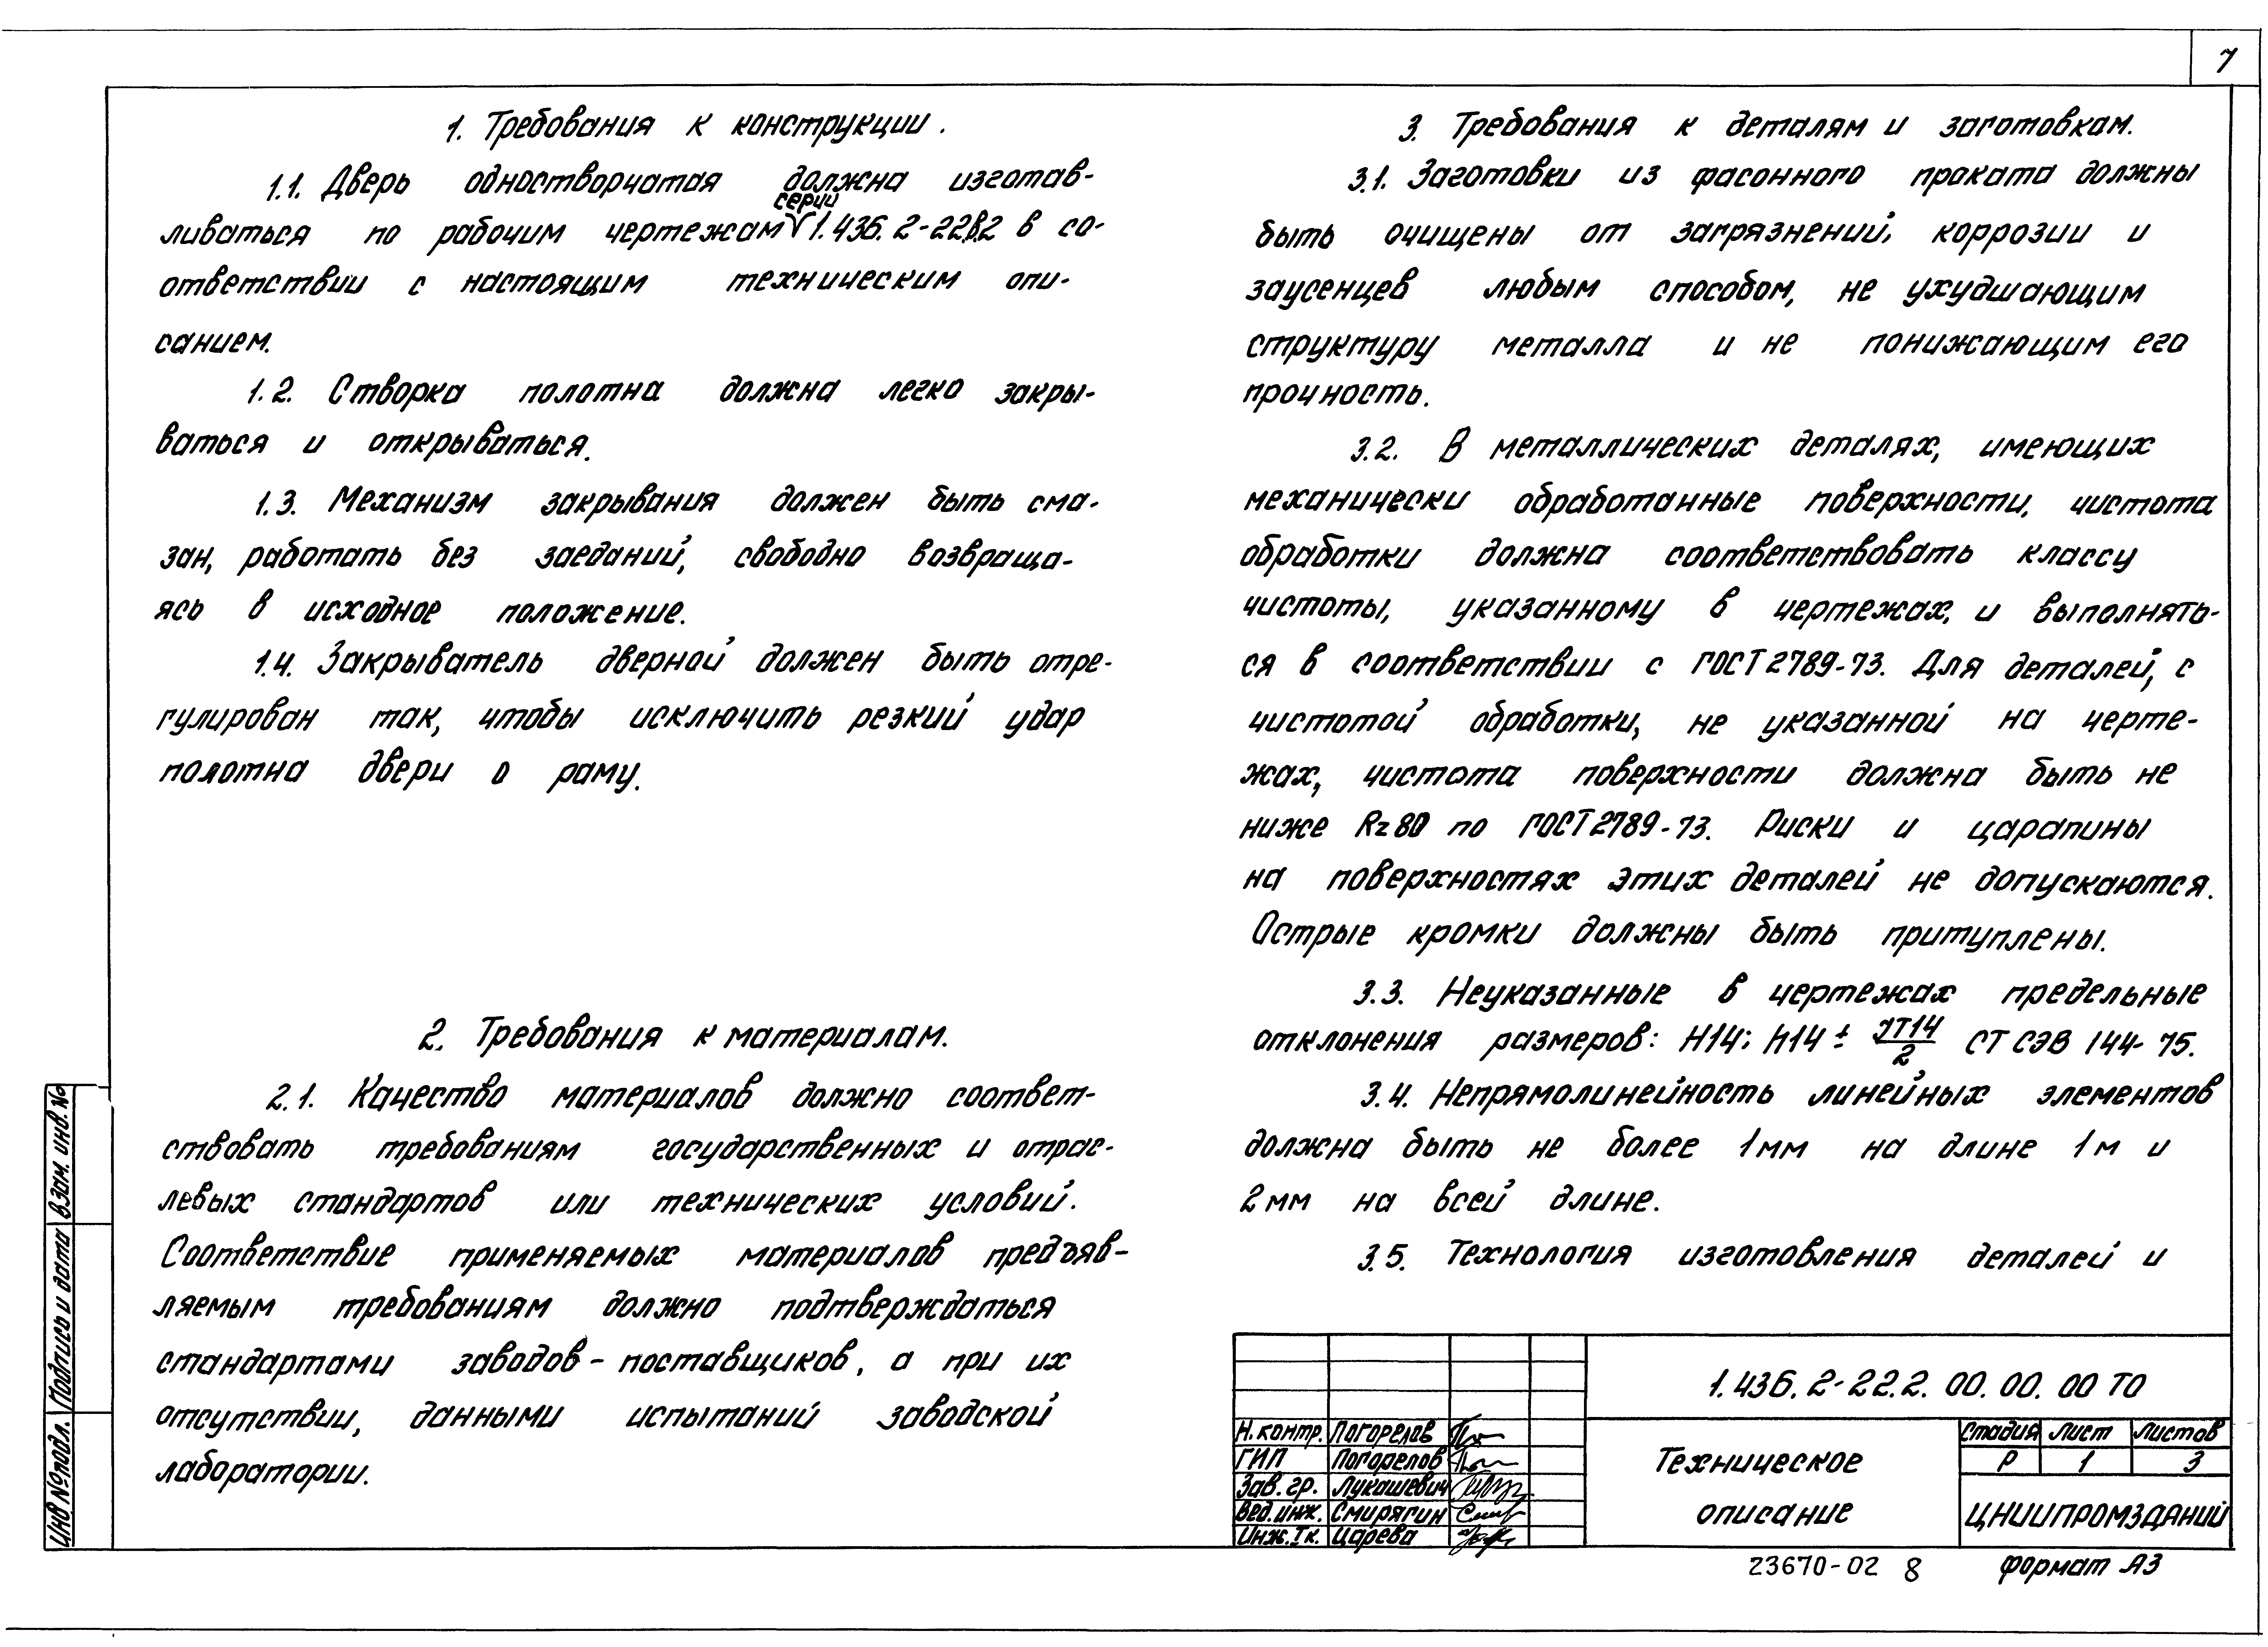 7
1. Требования к конструкции.
1.1. Дверь одностворчатая должна изготав-
ливаться по рабочим чертежам серии 1.436.2-22.2 в со-
ответствии с настоящим техническим опи-
санием.
1.2. Створка полотна должна легко закры-
ваться и открываться.
1.3. Механизм закрывания должен быть сма-
зан, работать без заеданий, свободно возвраща-
ясь в исходное положение.
1.4. Закрыватель дверной должен быть отре-
гулирован так, чтобы исключить резкий удар
полотна двери о раму.
2. Требования к материалам.
2.1. Качество материалов должно соответ-
ствовать требованиям государственных и отрас-
левых стандартов или технических условий.
Соответствие применяемых материалов предъяв-
ляемым требованиям должно подтверждаться
стандартами заводов-поставщиков, а при их
отсутствии, данными испытаний заводской
лаборатории.
3. Требования к деталям и заготовкам.
3.1. Заготовки из фасонного проката должны
быть очищены от загрязнений, коррозии и
заусенцев любым способом, не ухудшающим
структуру металла и не понижающим его
прочность.
3.2. В металлических деталях, имеющих
механически обработанные поверхности, чистота
обработки должна соответствовать классу
чистоты, указанному в чертежах, и выполнять-
ся в соответствии с ГОСТ 2789-73. Для деталей, с
чистотой обработки, не указанной на черте-
жах, чистота поверхности должна быть не
ниже Rz80 по ГОСТ 2789-73. Риски и царапины
на поверхностях этих деталей не допускаются.
Острые кромки должны быть притуплены.
3.3. Неуказанные в чертежах предельные
отклонения размеров: H14; h14 ± JT14/2 СТ СЭВ 144-75.
3.4. Непрямолинейность линейных элементов
должна быть не более 1мм на длине 1м и
2мм на всей длине.
3.5. Технология изготовления деталей и
1.436.2-22.2.00.00.00 ТО
Н.контр. Погорелов
ГИП Погорелов
Зав.гр. Лукашевич
Вед.инж. Смирягин
Инж.Iк. Царева
Техническое
описание
Стадия Лист Листов
Р 1 3
ЦНИИПРОМЗДАНИЙ
23670-02 8 формат А3
Инв № подл. Подпись и дата Взам. инв. №